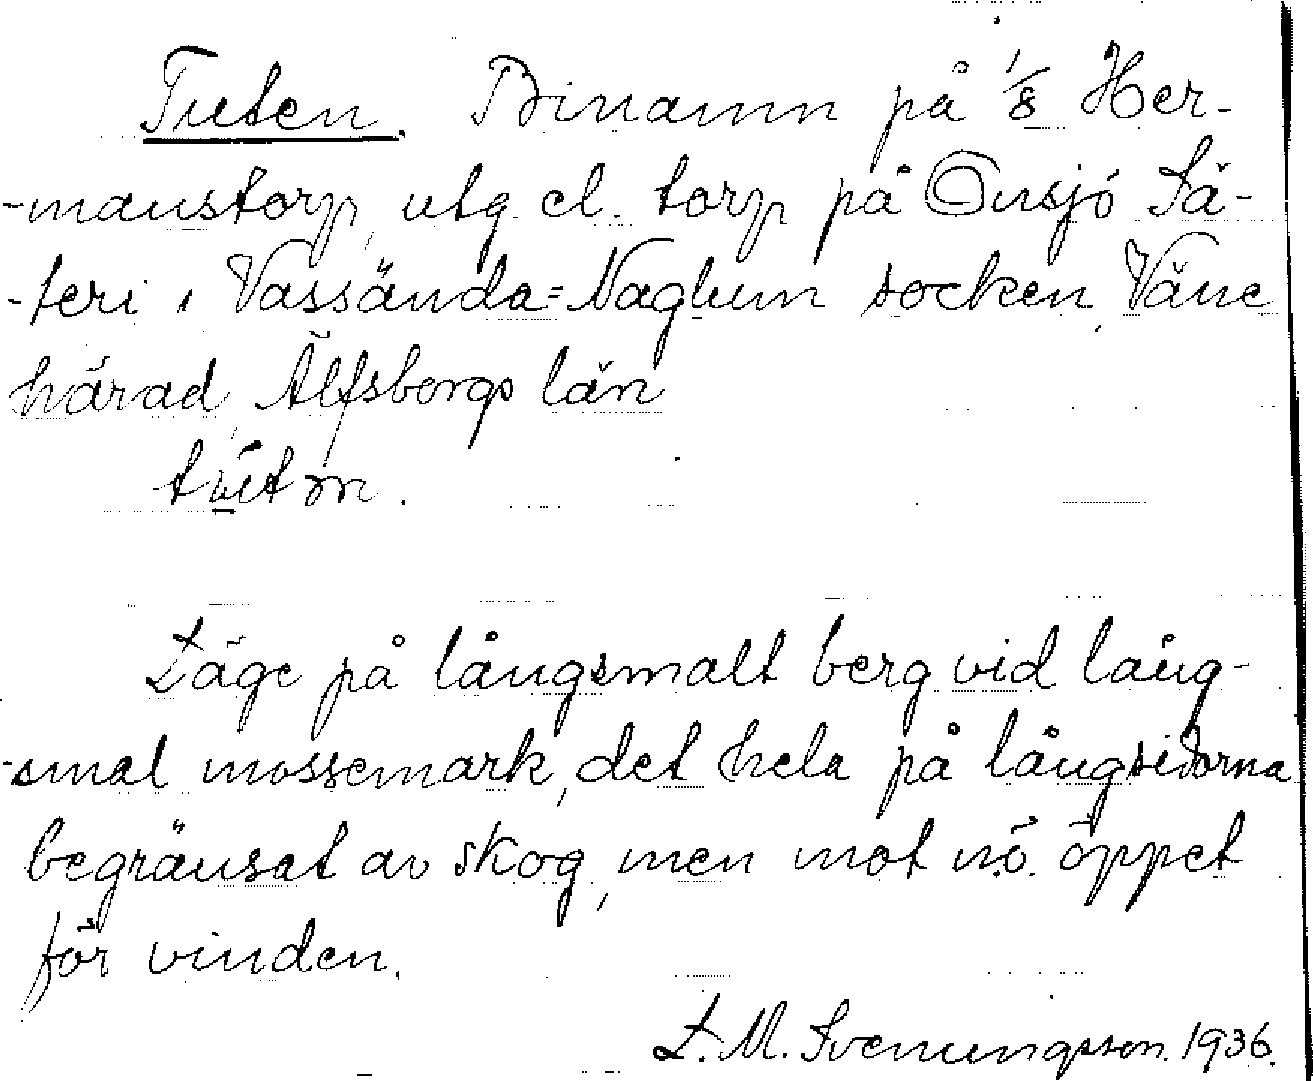 Tuten. Binamn på 1/8 Her-
-manstorp, utg. el. torp på Onsjö Sä-
-teri i Vassända=Naglum socken, Väne
härad, Älfsborgs län
Läge på långsmalt berg vid lång-
-smal mossemark, det hela på långsidorna
begränsat av skog, men mot n.ö. öppet
för vinden.
L. M. Svenungsson. 1936.